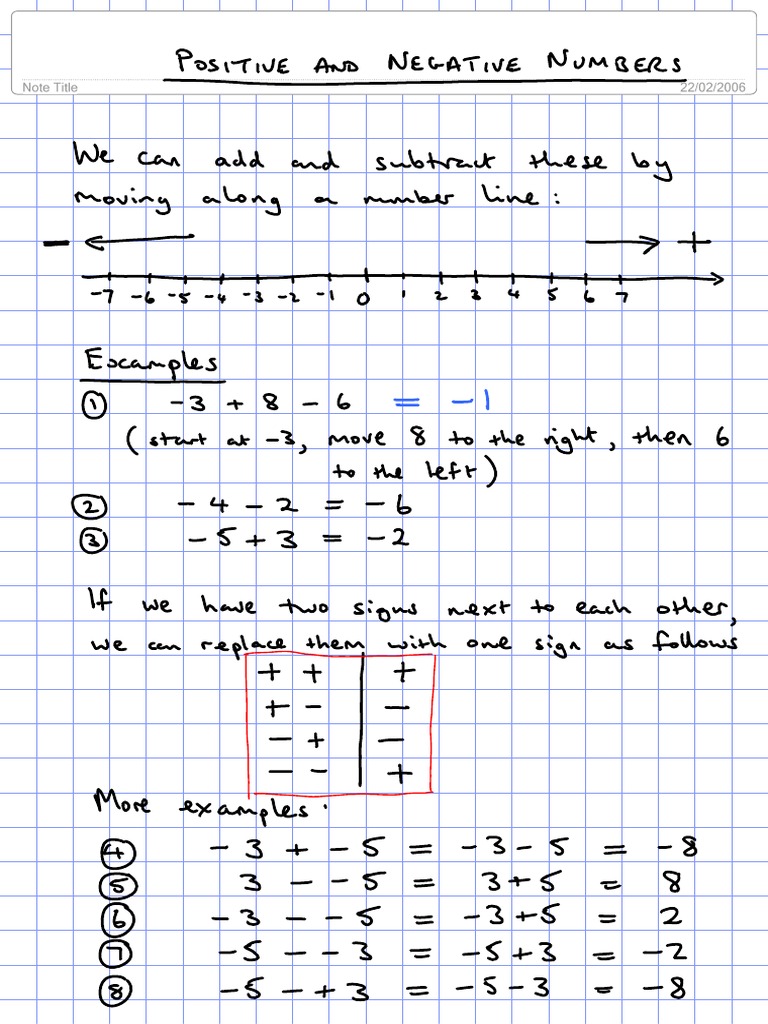 POSITIVE AND NEGATIVE NUMBERS
Note Title
22/02/2006
We can add and subtract these by
moving along a number line:
− +
-7 -6 -5 -4 -3 -2 -1 0 1 2 3 4 5 6 7
Examples
① -3 + 8 - 6 = -1
(start at -3, move 8 to the right, then 6
to the left)
② -4 - 2 = -6
③ -5 + 3 = -2
If we have two signs next to each other,
we can replace them with one sign as follows
+ + | +
+ - | -
- + | -
- - | +
More examples:
④ -3 + -5 = -3 - 5 = -8
⑤ 3 - -5 = 3 + 5 = 8
⑥ -3 - -5 = -3 + 5 = 2
⑦ -5 - -3 = -5 + 3 = -2
⑧ -5 - +3 = -5 - 3 = -8